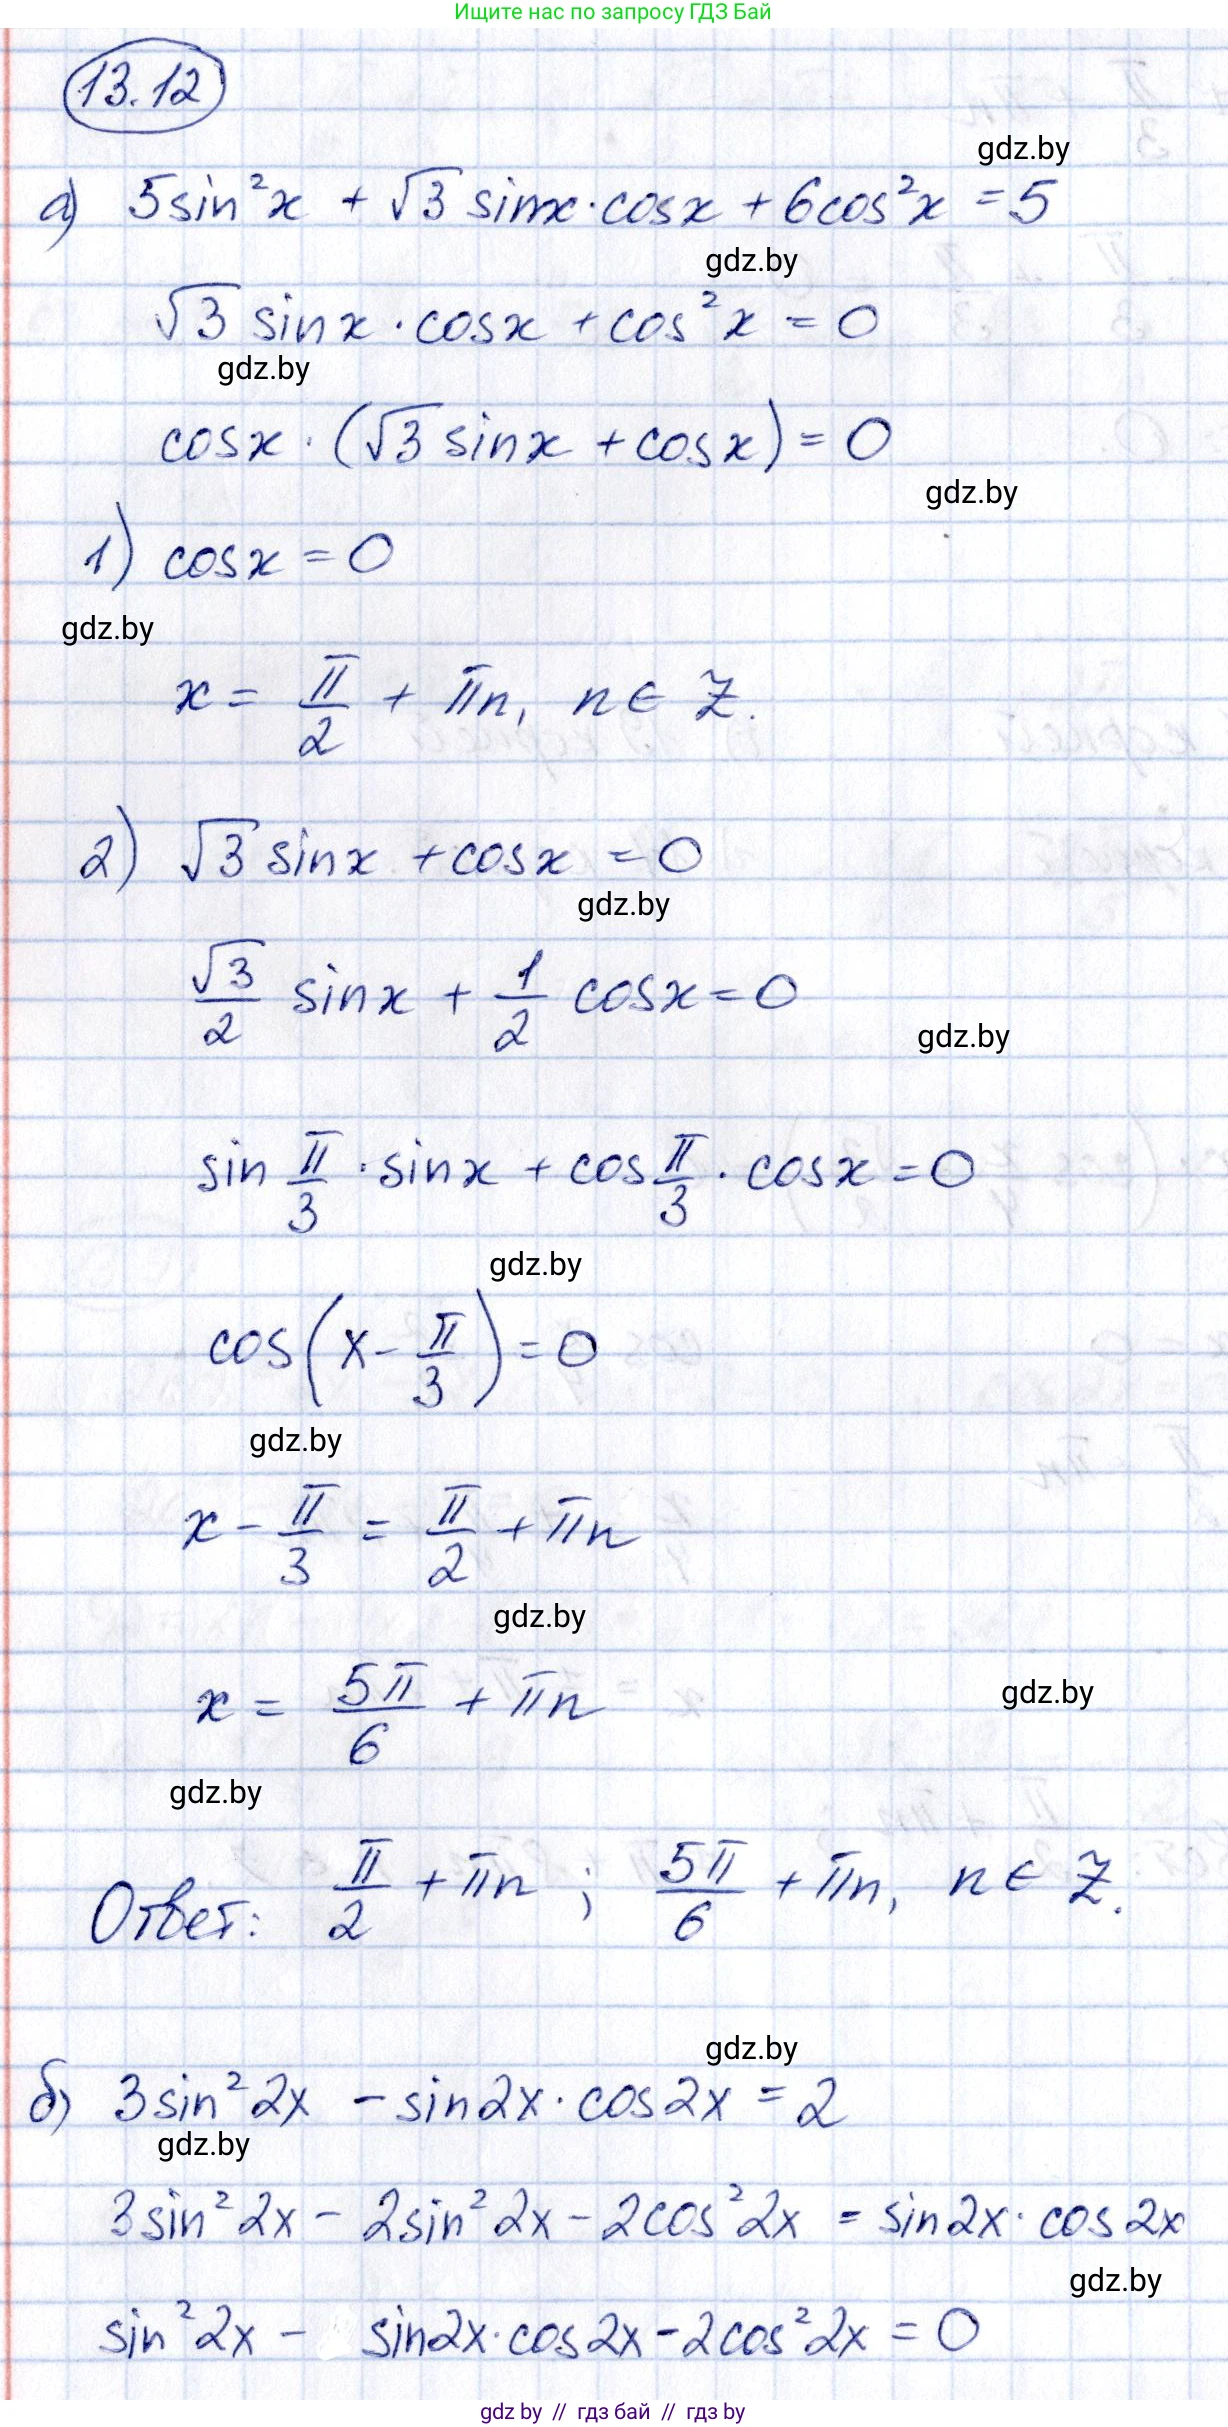 Ищите нас по запросу ГДЗ Бай
13.12
gdz.by
а) 5sin²x + √3 sinx·cosx + 6cos²x = 5
gdz.by
√3 sinx·cosx + cos²x = 0
gdz.by
cosx·(√3 sinx + cosx) = 0
gdz.by
1) cosx = 0
gdz.by
x = π/2 + πn, n ∈ Z.
2) √3 sinx + cosx = 0
gdz.by
√3/2 sinx + 1/2 cosx = 0
gdz.by
sin π/3 · sinx + cos π/3 · cosx = 0
gdz.by
cos(x - π/3) = 0
gdz.by
x - π/3 = π/2 + πn
gdz.by
x = 5π/6 + πn
gdz.by
gdz.by
Ответ: π/2 + πn ; 5π/6 + πn, n ∈ Z.
gdz.by
б) 3sin²2x - sin2x·cos2x = 2
gdz.by
3sin²2x - 2sin²2x - 2cos²2x = sin2x·cos2x
gdz.by
sin²2x - sin2x·cos2x - 2cos²2x = 0
gdz by // гдз бай // гдз by